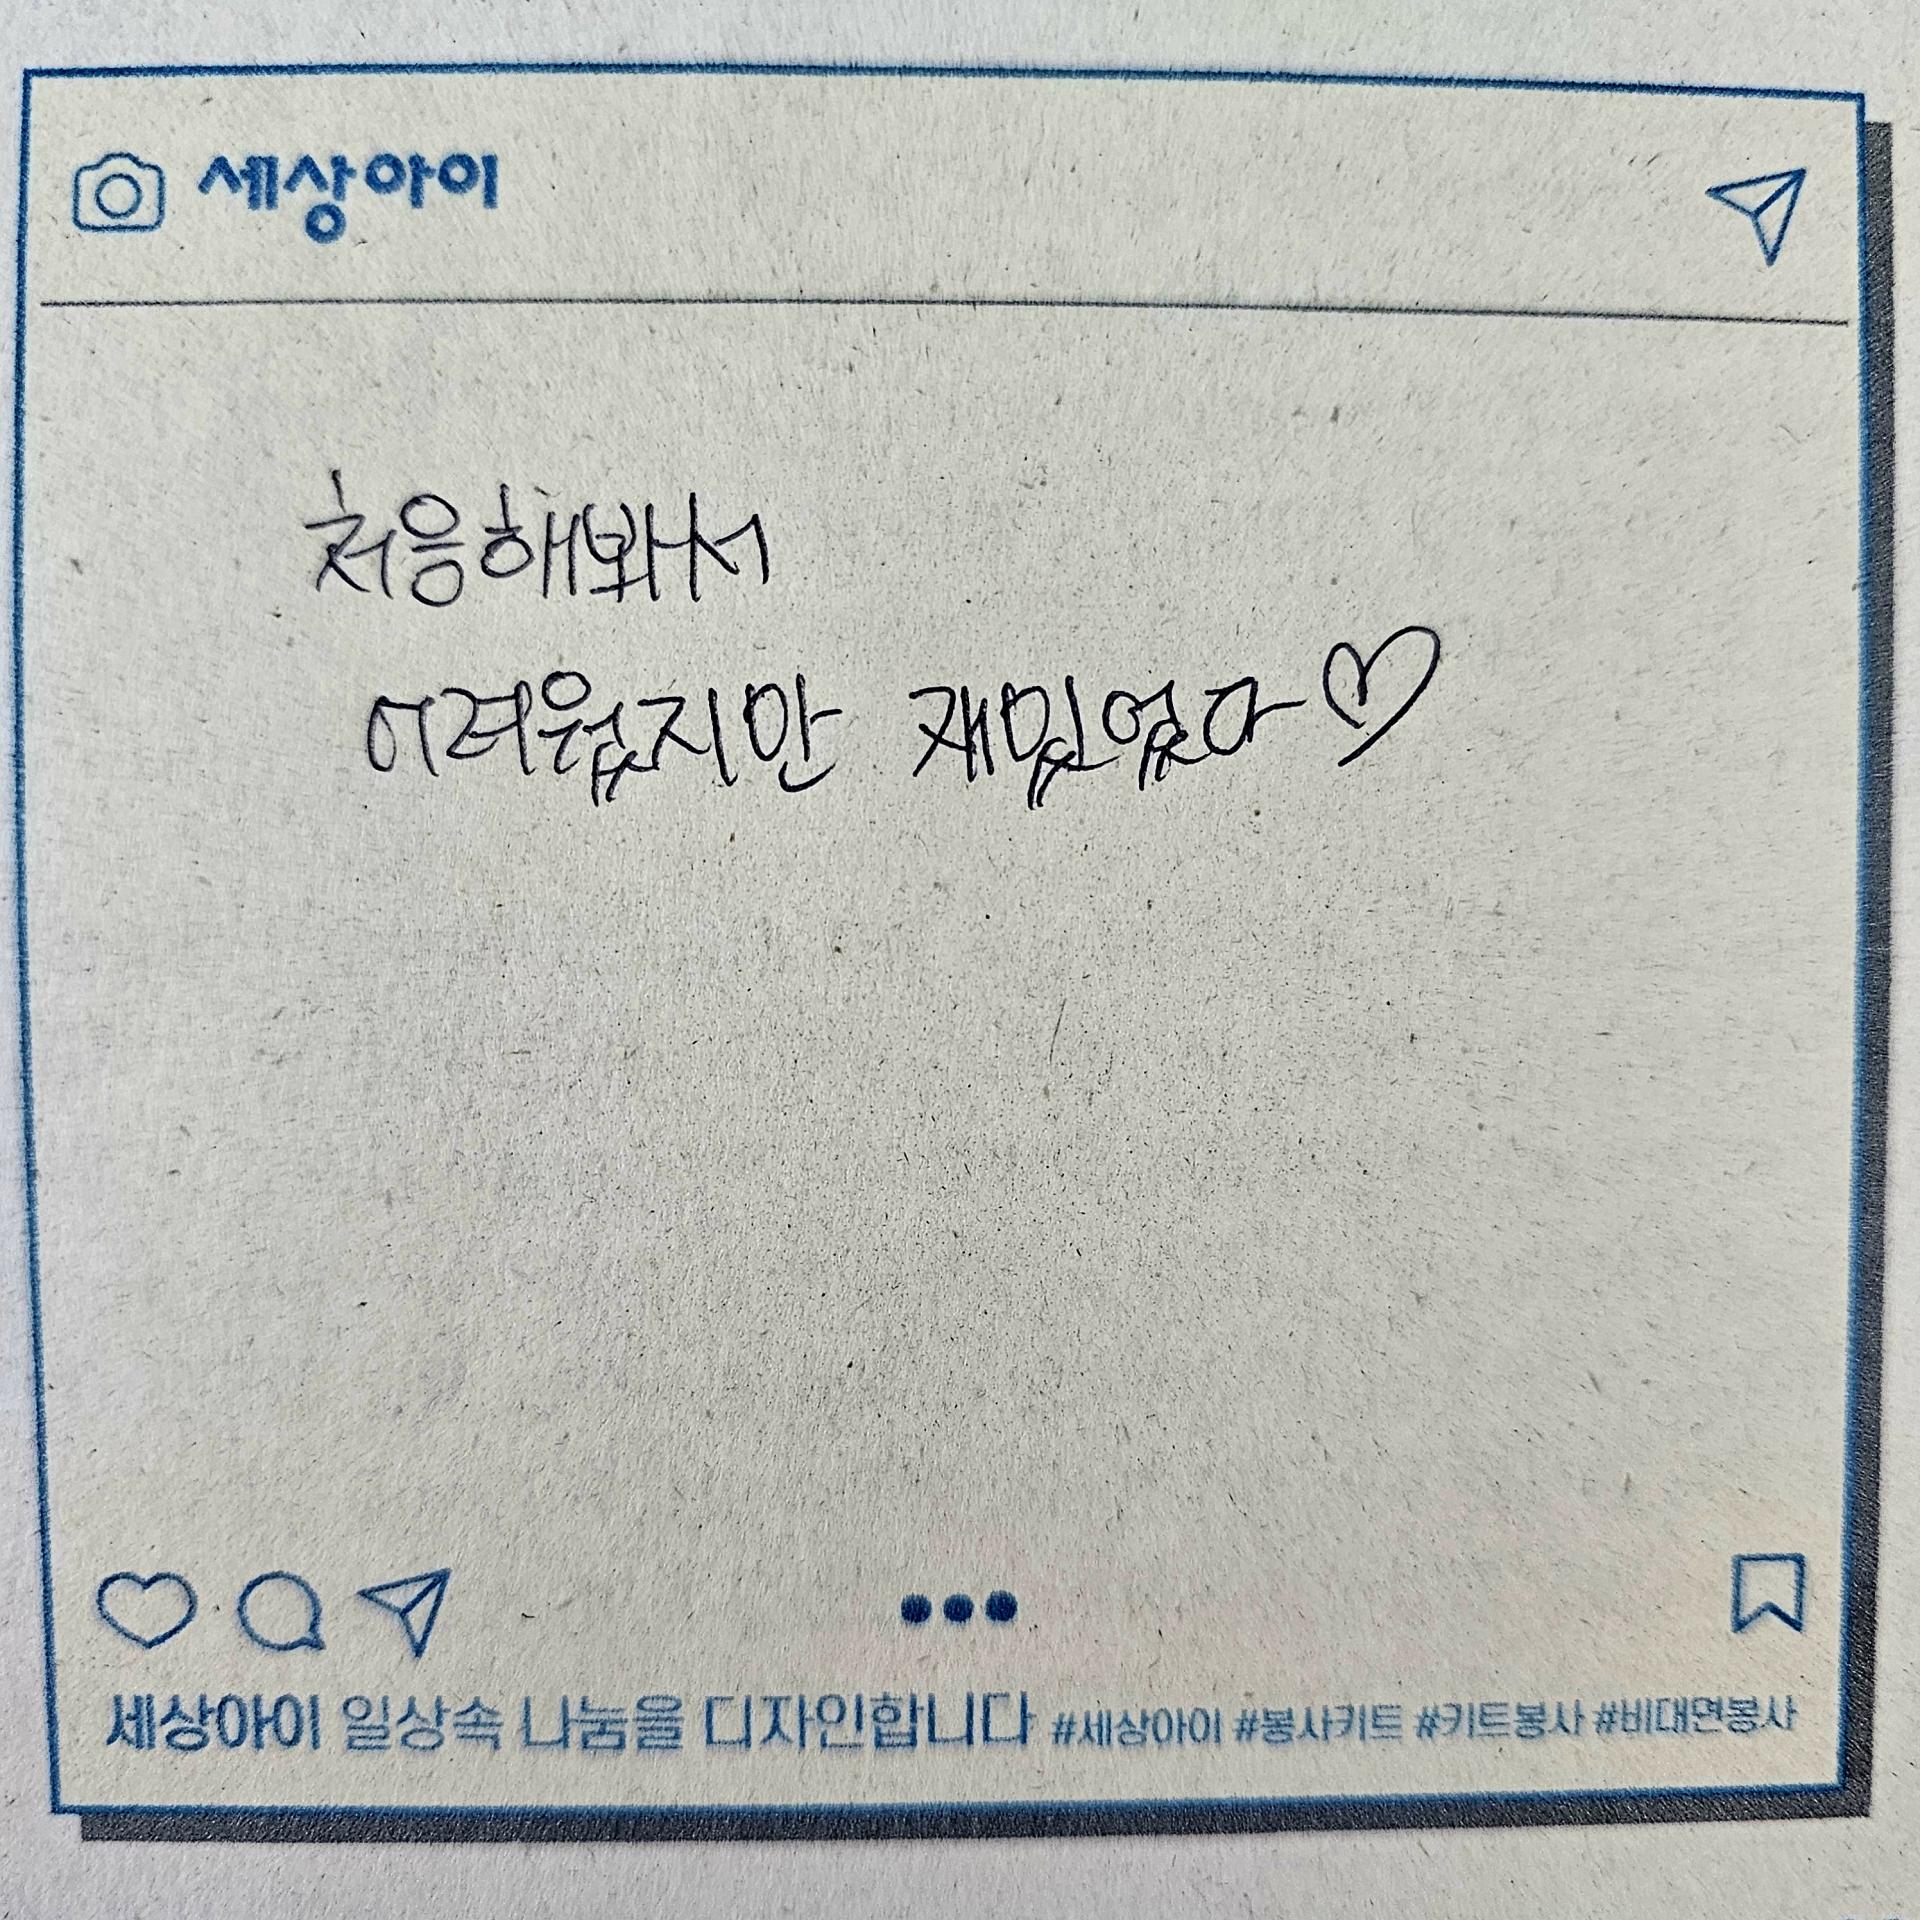 세상아이
처음해봐서
어려웠지만 재밌었다♡
세상아이 일상속 나눔을 디자인합니다 #세상아이 #봉사키트 #키트봉사 #비대면봉사